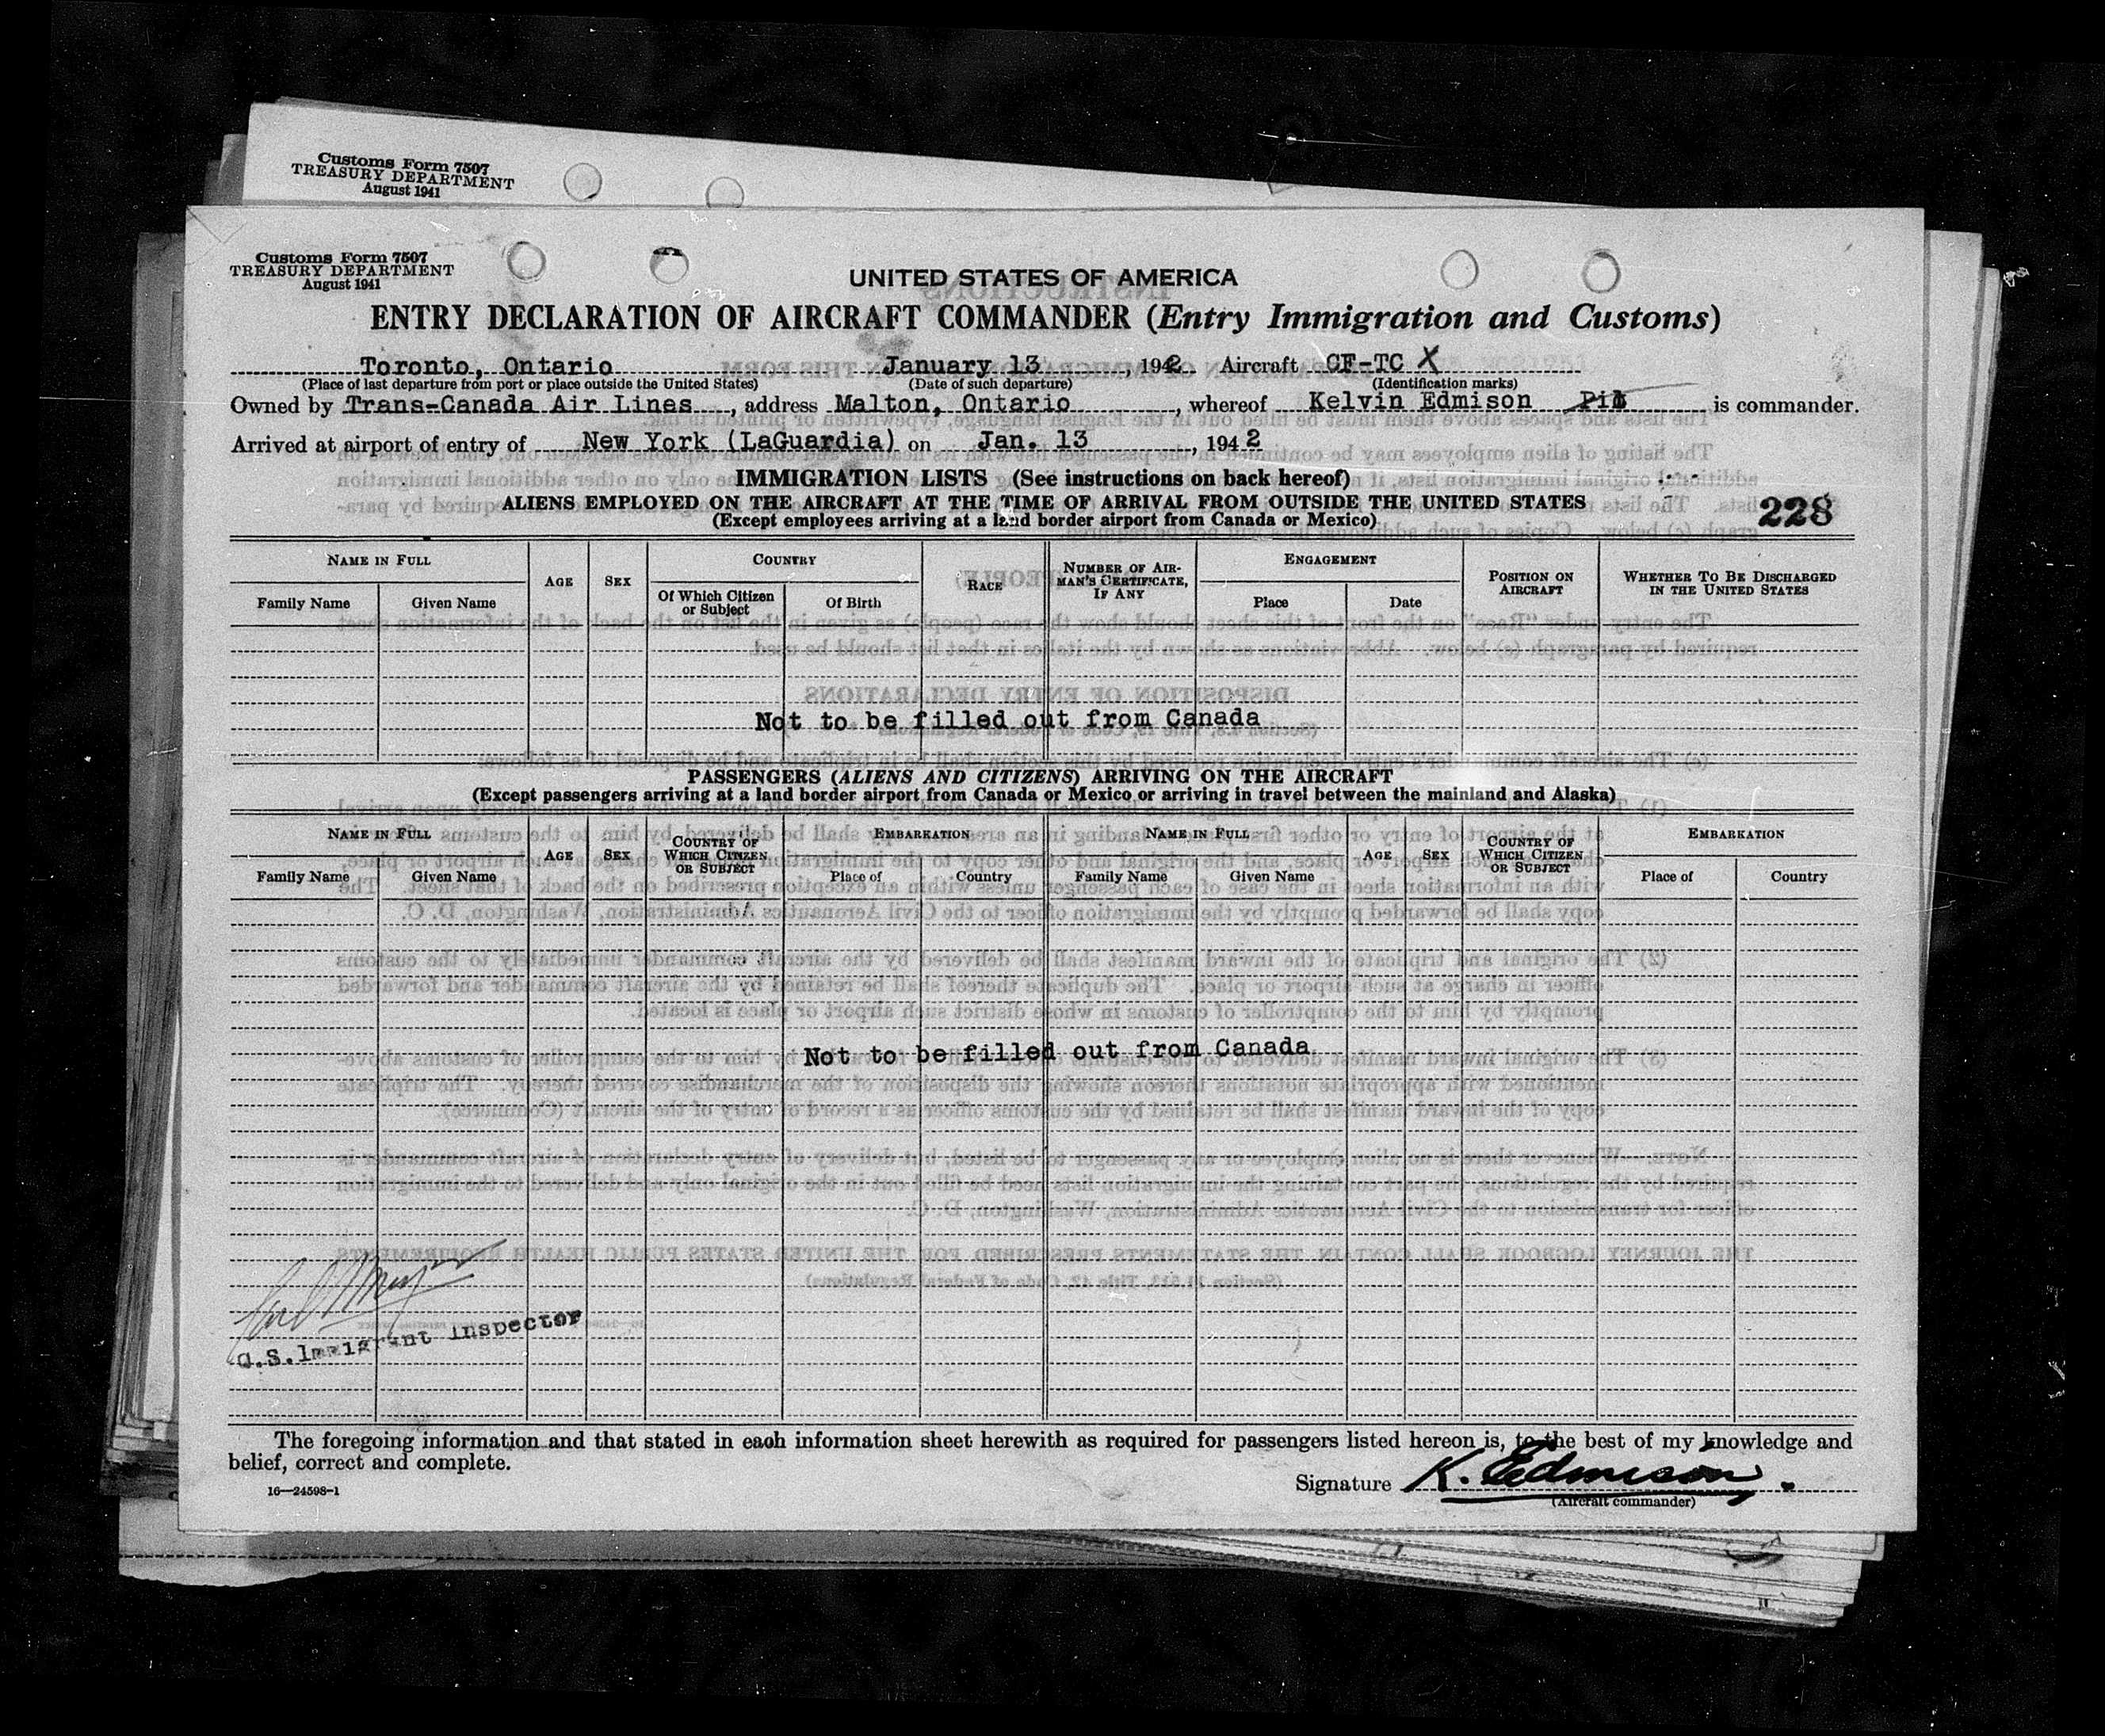 Customs Form 7507
TREASURY DEPARTMENT
August 1941
Customs Form 7507
TREASURY DEPARTMENT
August 1941
UNITED STATES OF AMERICA
ENTRY DECLARATION OF AIRCRAFT COMMANDER (Entry Immigration and Customs)
Toronto, Ontario January 13, 1942. Aircraft CF-TC X
(Place of last departure from port or place outside the United States) (Date of such departure) (Identification marks)
Owned by Trans-Canada Air Lines, address Malton, Ontario, whereof Kelvin Edmison is commander.
Arrived at airport of entry of New York (LaGuardia) on Jan. 13, 1942
IMMIGRATION LISTS (See instructions on back hereof)
ALIENS EMPLOYED ON THE AIRCRAFT AT THE TIME OF ARRIVAL FROM OUTSIDE THE UNITED STATES
(Except employees arriving at a land border airport from Canada or Mexico)
228
NAME IN FULL AGE SEX COUNTRY RACE NUMBER OF AIRMAN'S CERTIFICATE, IF ANY ENGAGEMENT POSITION ON AIRCRAFT WHETHER TO BE DISCHARGED IN THE UNITED STATES
Family Name Given Name Of Which Citizen or Subject Of Birth Place Date
Not to be filled out from Canada
PASSENGERS (ALIENS AND CITIZENS) ARRIVING ON THE AIRCRAFT
(Except passengers arriving at a land border airport from Canada or Mexico or arriving in travel between the mainland and Alaska)
NAME IN FULL AGE SEX COUNTRY OF WHICH CITIZEN OR SUBJECT EMBARKATION NAME IN FULL AGE SEX COUNTRY OF WHICH CITIZEN OR SUBJECT EMBARKATION
Family Name Given Name Place of Country Family Name Given Name Place of Country
Not to be filled out from Canada
U.S. Immigrant Inspector
The foregoing information and that stated in each information sheet herewith as required for passengers listed hereon is, to the best of my knowledge and
belief, correct and complete.
Signature K. Edmison.
(Aircraft commander)
16—24598-1